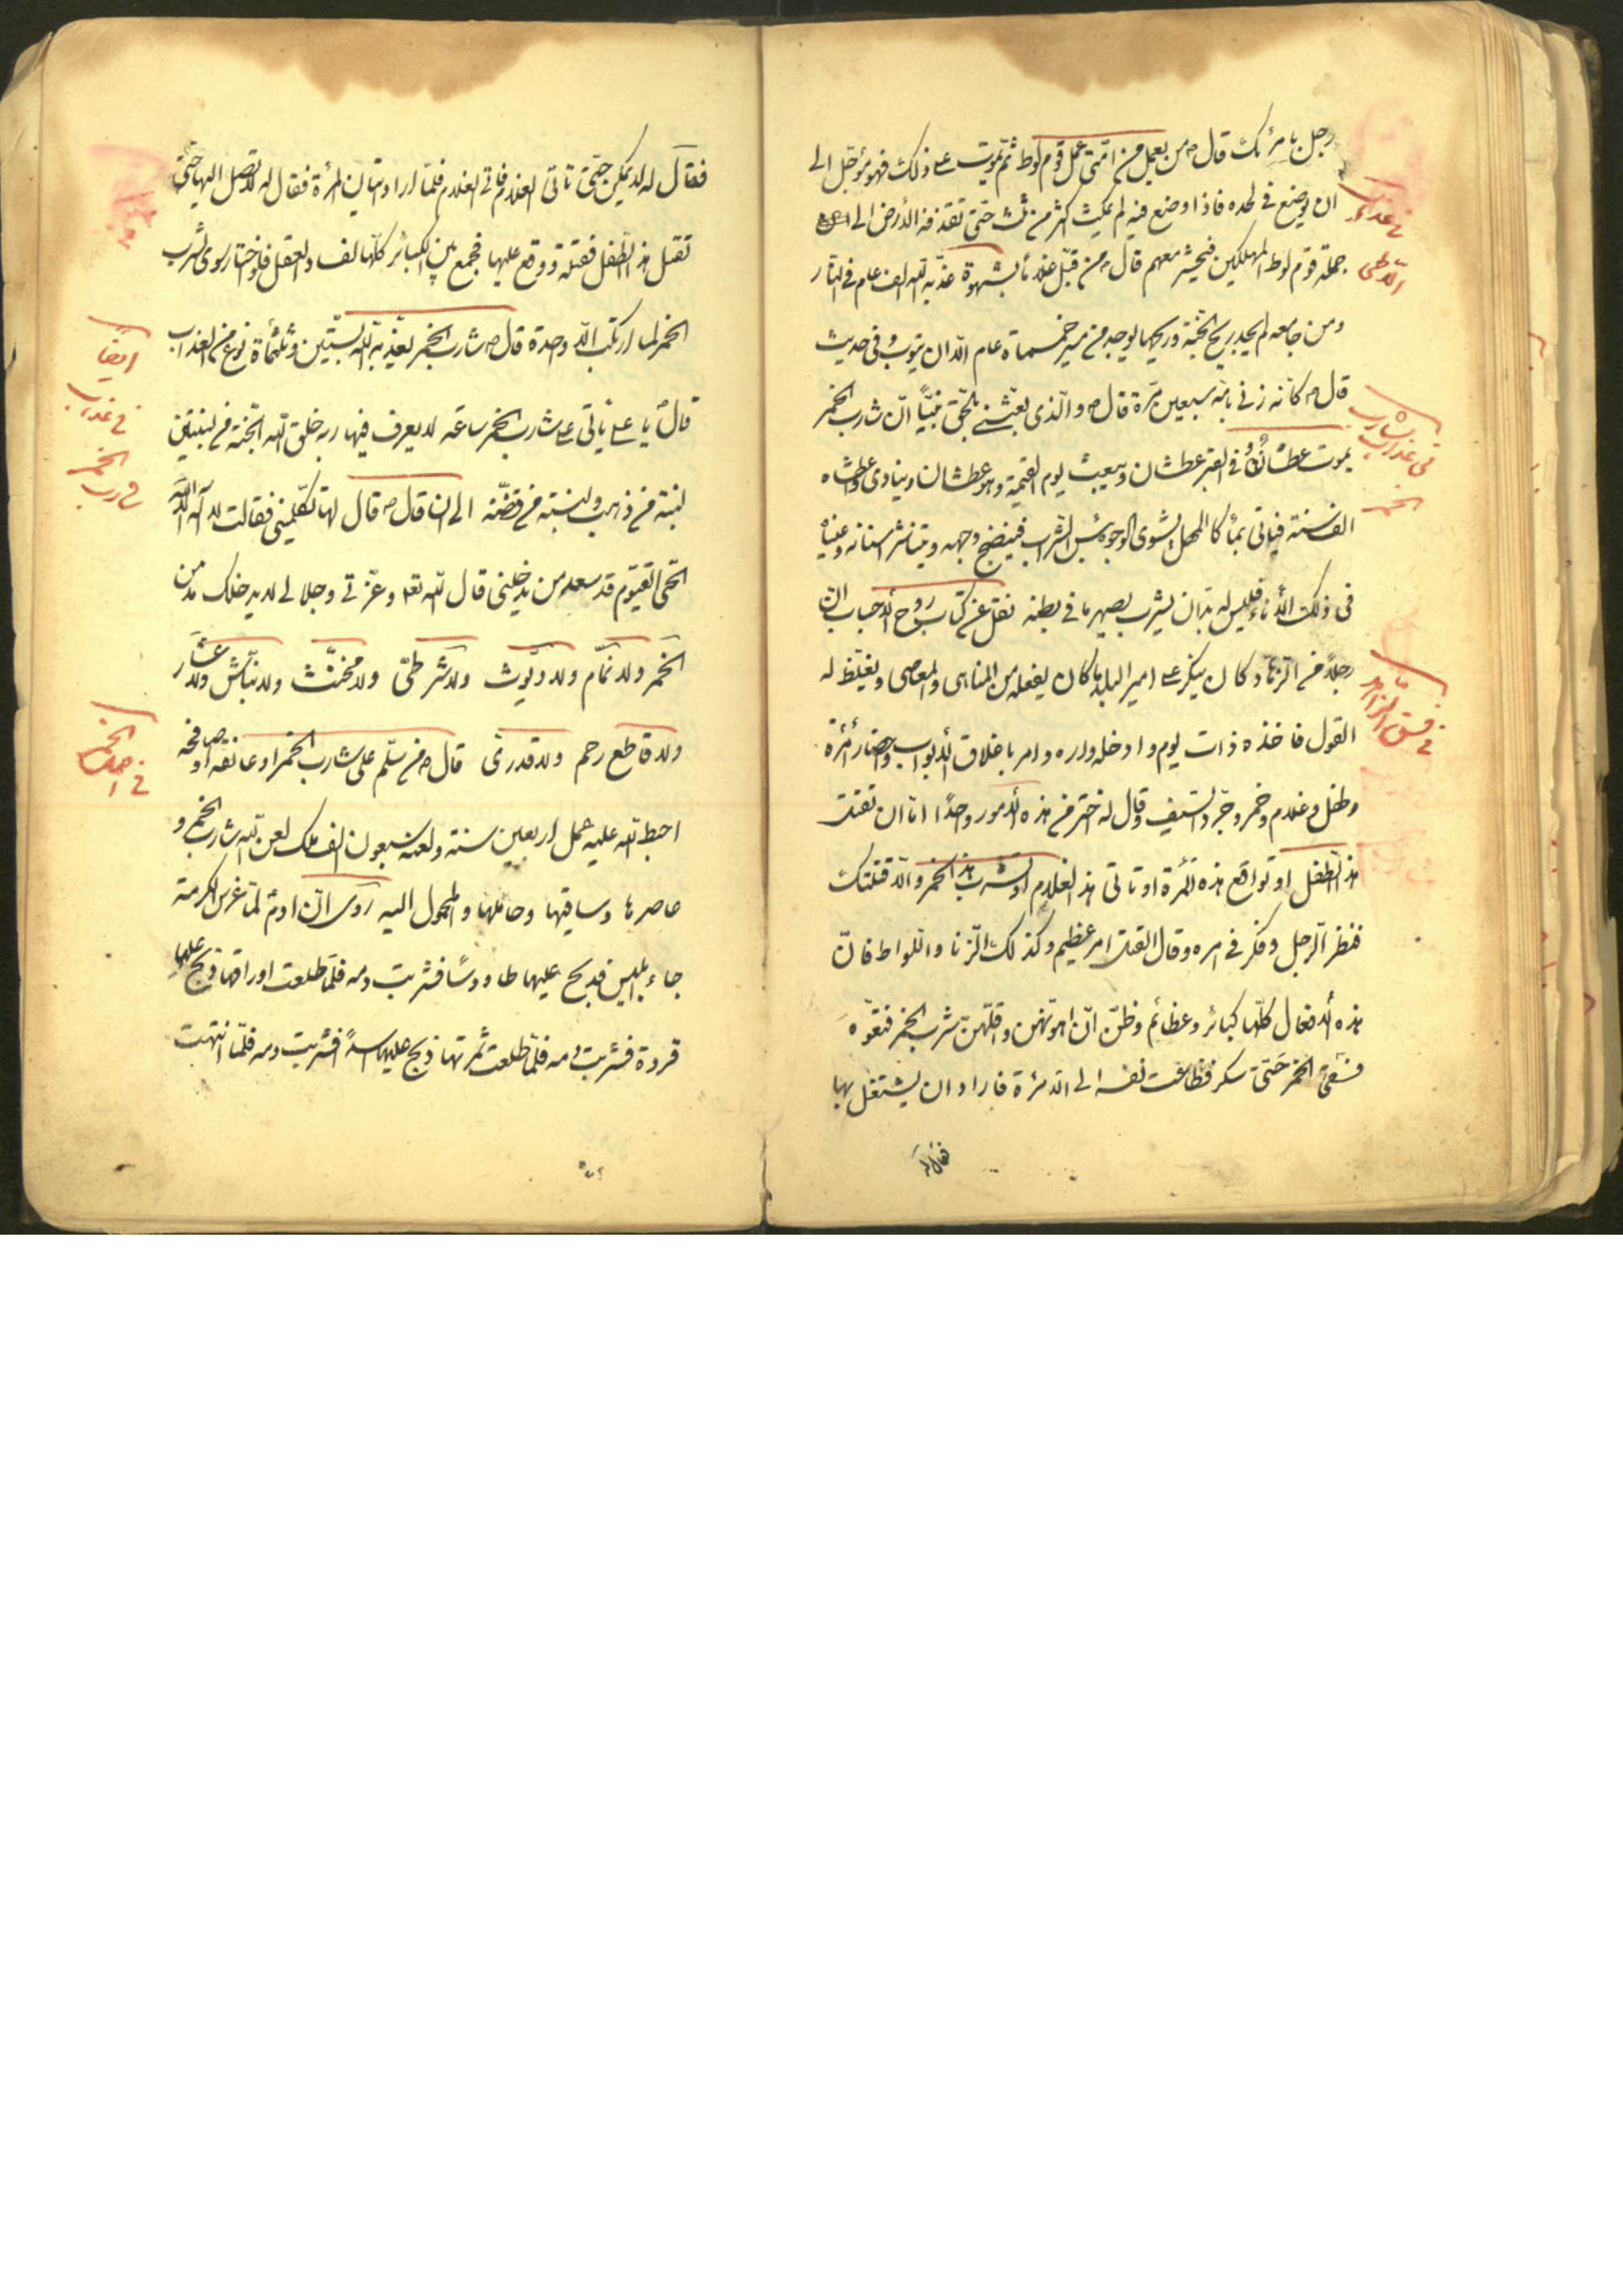 رجل بامرئك قال ص من يعمل من امّتى عمل قوم لوط ثمّ يموت على ذلك فهو مؤجّل الى
ان يوضع فى لحده فاذا وضع فيه لم يمكث اكثر من ثلث حتّى تقذفه الأرض الى
جملة قوم لوط المهلكين فيحشر معهم قال ص من قبّل غلاماً بشهوة عذّبه اللّه الف عام فى النّار
ومن جامعه لم يجد ريح الجنّة وريحها يوجد من مسير خمسمأة عام الّا ان يتوب و فى حديث
قال ص كانّه زنى بامّه سبعين مرّة قال ص والّذى بعثنى بالحقّ نبيّاً انّ شارب الخمر
يموت عطشان و فى القبر عطشان ويبعث يوم القيمة وهو عطشان وينادى واعطشاه
الف سنة فيأتى بمأ كالمهل يشوى الوجوه بئس الشّراب فينضج وجهه ويتناثر اسنانه وعيناه
فى ذلك الأناء فليس له بدّ ان يشرب يصهر ما فى بطنه نقل عن كتاب روح الاحباب انّ
رجلاً من الزّهّاد كان ينكر على امير البلد ما كان يفعله من المناهى والمعاصى ويغلّظ له
القول فاخذه ذات يوم وادخله داره وامر باغلاق الأبواب واحضار امرئة
وطفل وغلام وخمر وجرّد السّيف وقال له اختر من هذه الأمور واحدًا امّا ان تقتل
هذا الطّفل او تواقع هذه المرئة او تاتى هذا الغلام او تشرب هذا الخمر والّا قتلتك
فنظر الرّجل وفكّر فى امره وقال القتل امر عظيم وكذلك الزّنا واللّواط فانّ
هذه الأفعال كلّها كبائر وعظائم وظنّ انّ اهونهنّ واقلّهنّ شرب الخمر فتفوّه
فسقى الخمر حتّى سكر فظاقت نفسه الى الامرئة فاراد ان يشتغل بها
فقال له
فى عذاب
اللّاطى
فى عذاب شارب
الخمر
فى فسق الزاهد
فقال له لا يمكن حتّى تاتى الغلام فاتى الغلام فلمّا اراد اتيان المرئة فقال له لا تصل اليها حتّى
تقتل هذا الطّفل فقتله و وقع عليها فجمع بين الكبائر كلّها لفساد العقل فلو اختار سوى شرب
الخمر لما ارتكب الّا واحدة قال ص شارب الخمر يعذّبه اللّه بستّين وثلثمأة نوع من العذاب
قال ص يا على يأتى على شارب الخمر ساعة لا يعرف فيها ربه خلق اللّه الجنّة من لبنتين
لبنة من ذهب ولبنة من فضّة الى ان قال ص قال لها تكلّمينى فقالت لا اله الّا اللّه
الحىّ القيّوم قد سعد من يدخلنى قال اللّه تعا وعزّتى وجلالى لا يدخلك مدمن
الخمر ولا نمّام ولا ديّوث ولا شرطىّ ولا مخنّث ولا نبّاش ولا عشّار
ولا قاطع رحم ولا قدرىّ قال ص من سلّم على شارب الخمر او عانقه او صافحه
احبط اللّه عليه عمل اربعين سنة ولعنه سبعون الف ملك لعن اللّه شارب الخمر و
عاصرها وساقيها وحاملها والمحمول اليه روى انّ ادم لمّا غرس الكرمة
جاء ابليس فذبح عليها طاووسًا فشربت دمه فلمّا طلعت اوراقها ذبح عليها
قردة فشربت دمه فلمّا طلعت ثمرتها ذبح عليها اسدًا فشربت دمه فلمّا انتهت
ايضا
فى عذاب
الخمر
فى